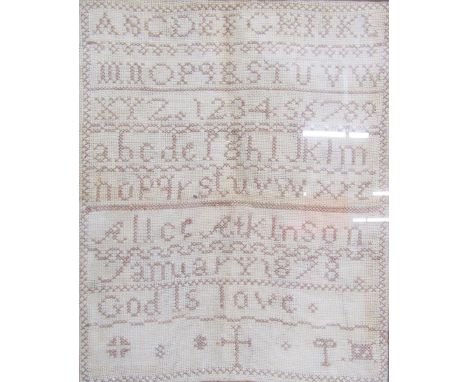 ABCDEFGHIJKL
MNOPQRSTUVW
XYZ. 1234.56789
abcdefghIJklm
nopqrstuvwxyz
Alice Atkinson
January 1878
God Is love